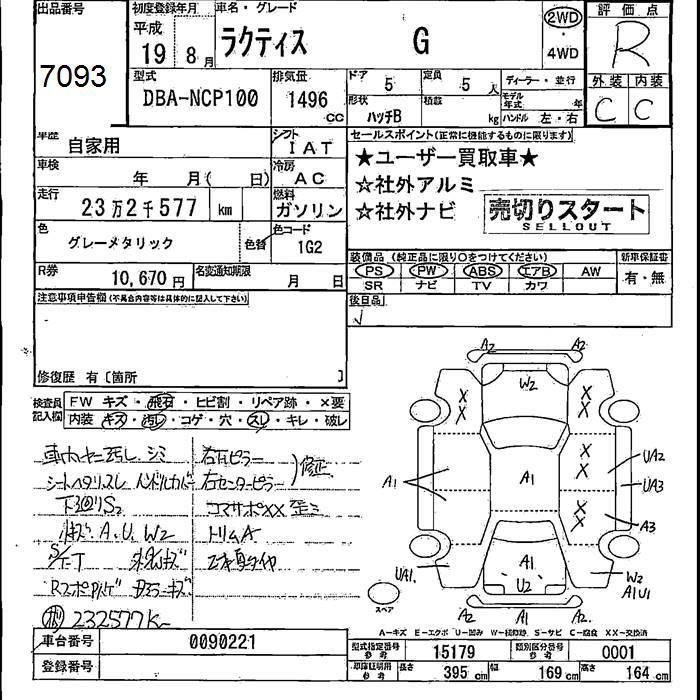 出品番号
7093
初度登録年月
平成
19 8月
車名・グレード
ラクティス G
2WD
・
4WD
評価点
R
外装 内装
C C
型式
DBA-NCP100
排気量
1496 CC
ドア 5
定員 5人
形状 ハッチB
積載 kg
ディーラー・並行
モデル年式 年
ハンドル 左・右
車歴
自家用
シフト
IAT
車検
年 月( 日)
冷房
AC
走行
23万2千577 km
燃料
ガソリン
色
グレーメタリック
色替
色コード
1G2
R券
10,670円
名変通知期限
月 日
セールスポイント(正常に機能するものに限ります)
★ユーザー買取車★
☆社外アルミ
☆社外ナビ
売切りスタート
SELLOUT
装備品(純正品に限り○をつけてください)
PS PW ABS エアB AW
SR ナビ TV カワ
新車保証書
有・無
後日品
注意事項申告欄(不具合内容等は具体的に記入して下さい)
修復歴 有〔箇所 〕
検査員記入欄
FW キズ・飛石・ヒビ割・リペア跡・×要
内装・キズ・汚レ・コゲ・穴・スレ・キレ・破レ
シミ
右Fピラー
シートヘタリスレ ハンドルカバー
右センターピラー
修正
下回りS2
コマサポXX 歪ミ
A.U.W2
トリムA
232577K
車台番号
0090221
登録番号
A2 A2
W2
A1
A1
UA2
UA3
A3
A1
U2
UA1
W2
A1U1
A2 A1 A2
スペア
A−キズ E−エクボ U−凹み W−補修跡 S−サビ C−腐食 XX−交換済
型式指定番号 参考
15179
類別区分番号 参考
0001
車庫証明用 参考
長さ 395 cm
幅 169 cm
高さ 164 cm